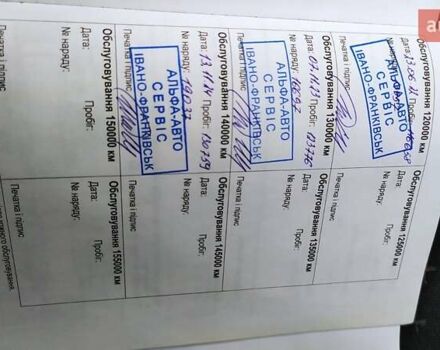 Обслуговування 120000 км
Дата: 23.06.22 Пробіг:
№ наряду:
Печатка і підпис
АЛЬФА-АВТО
СЕРВІС
ІВАНО-ФРАНКІВСЬК
Обслуговування 125000 км
Дата: Пробіг:
№ наряду:
Печатка і підпис
Обслуговування 130000 км
Дата: 07.11.23 Пробіг: 123776
№ наряду:
Печатка і підпис
АЛЬФА-АВТО
СЕРВІС
ІВАНО-ФРАНКІВСЬК
Обслуговування 135000 км
Дата: Пробіг:
№ наряду:
Печатка і підпис
Обслуговування 140000 км
Дата: 13.11.24 Пробіг: 130739
№ наряду:
Печатка і підпис
АЛЬФА-АВТО
СЕРВІС
ІВАНО-ФРАНКІВСЬК
Обслуговування 145000 км
Дата: Пробіг:
№ наряду:
Печатка і підпис
Обслуговування 150000 км
Дата: Пробіг:
№ наряду:
Печатка і підпис
Обслуговування 155000 км
Дата: Пробіг:
№ наряду:
Печатка і підпис
кожного обслуговування.